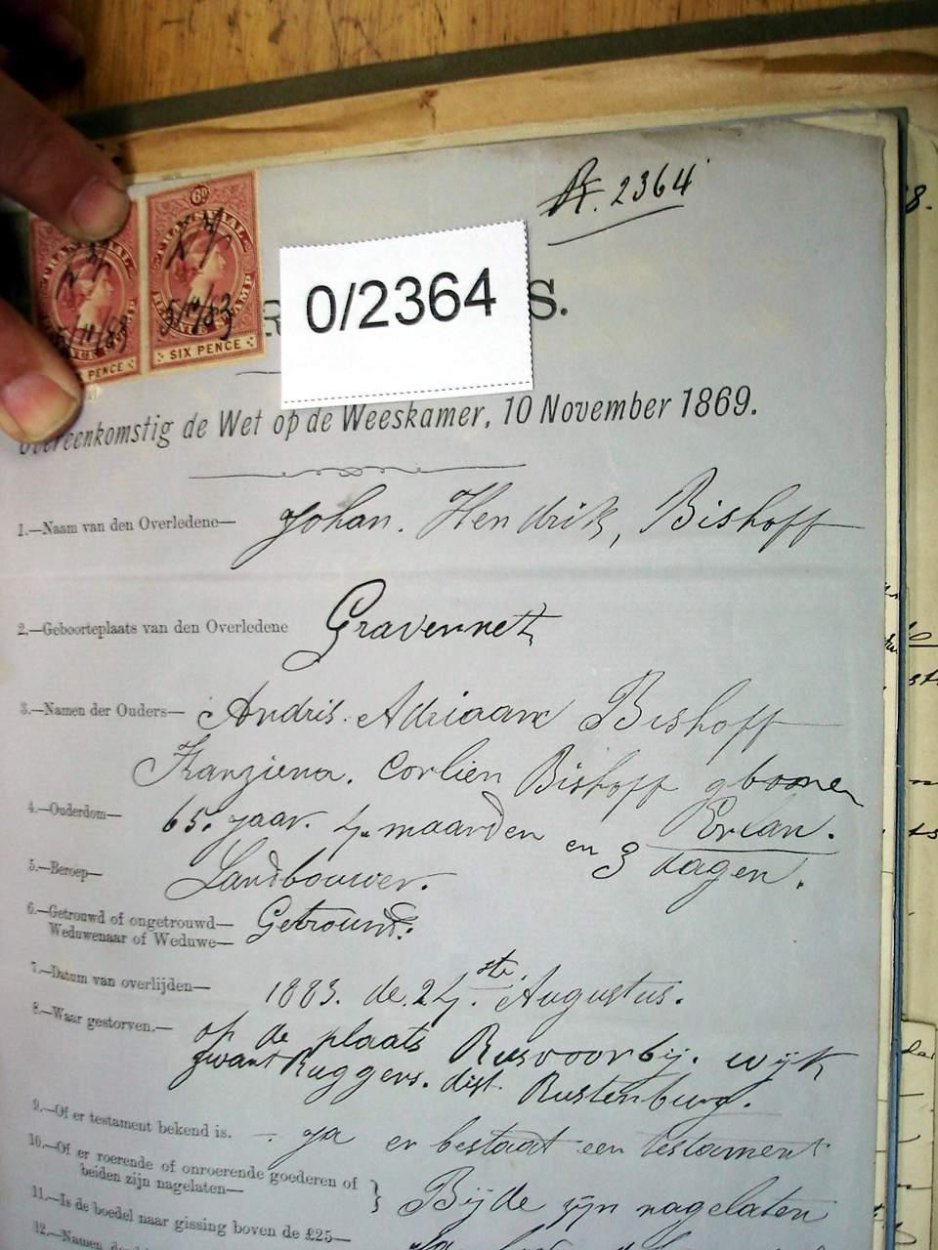 No. 2364
6D
TRANSVAAL
SIX PENCE
5/11/83
PENCE
0/2364
S.
Overeenkomstig de Wet op de Weeskamer, 10 November 1869.
1.—Naam van den Overledene— Johan. Hendrik, Bishoff
2.—Geboorteplaats van den Overledene Gravennet
3.—Namen der Ouders— Andris. Adriaan Bishoff
Franziena. Corlien Bishoff gboonen
Erlan.
4.—Ouderdom— 65. jaar. 4 maanden en 3 dagen.
5.—Beroep— Landbouwer.
6.—Getrouwd of ongetrouwd— Getrouwd.
Weduwenaar of Weduwe—
7.—Datum van overlijden— 1883. de 24ste. Augustus.
8.—Waar gestorven.— op de plaats Rusvoorbij. wijk
zwart Ruggens. dist. Rustenburg.
9.—Of er testament bekend is. — ja er bestaat een testament
10.—Of er roerende of onroerende goederen of
beiden zijn nagelaten— } Bijde zijn nagelaten
11.—Is de boedel naar gissing boven de £25—
12.—Namen